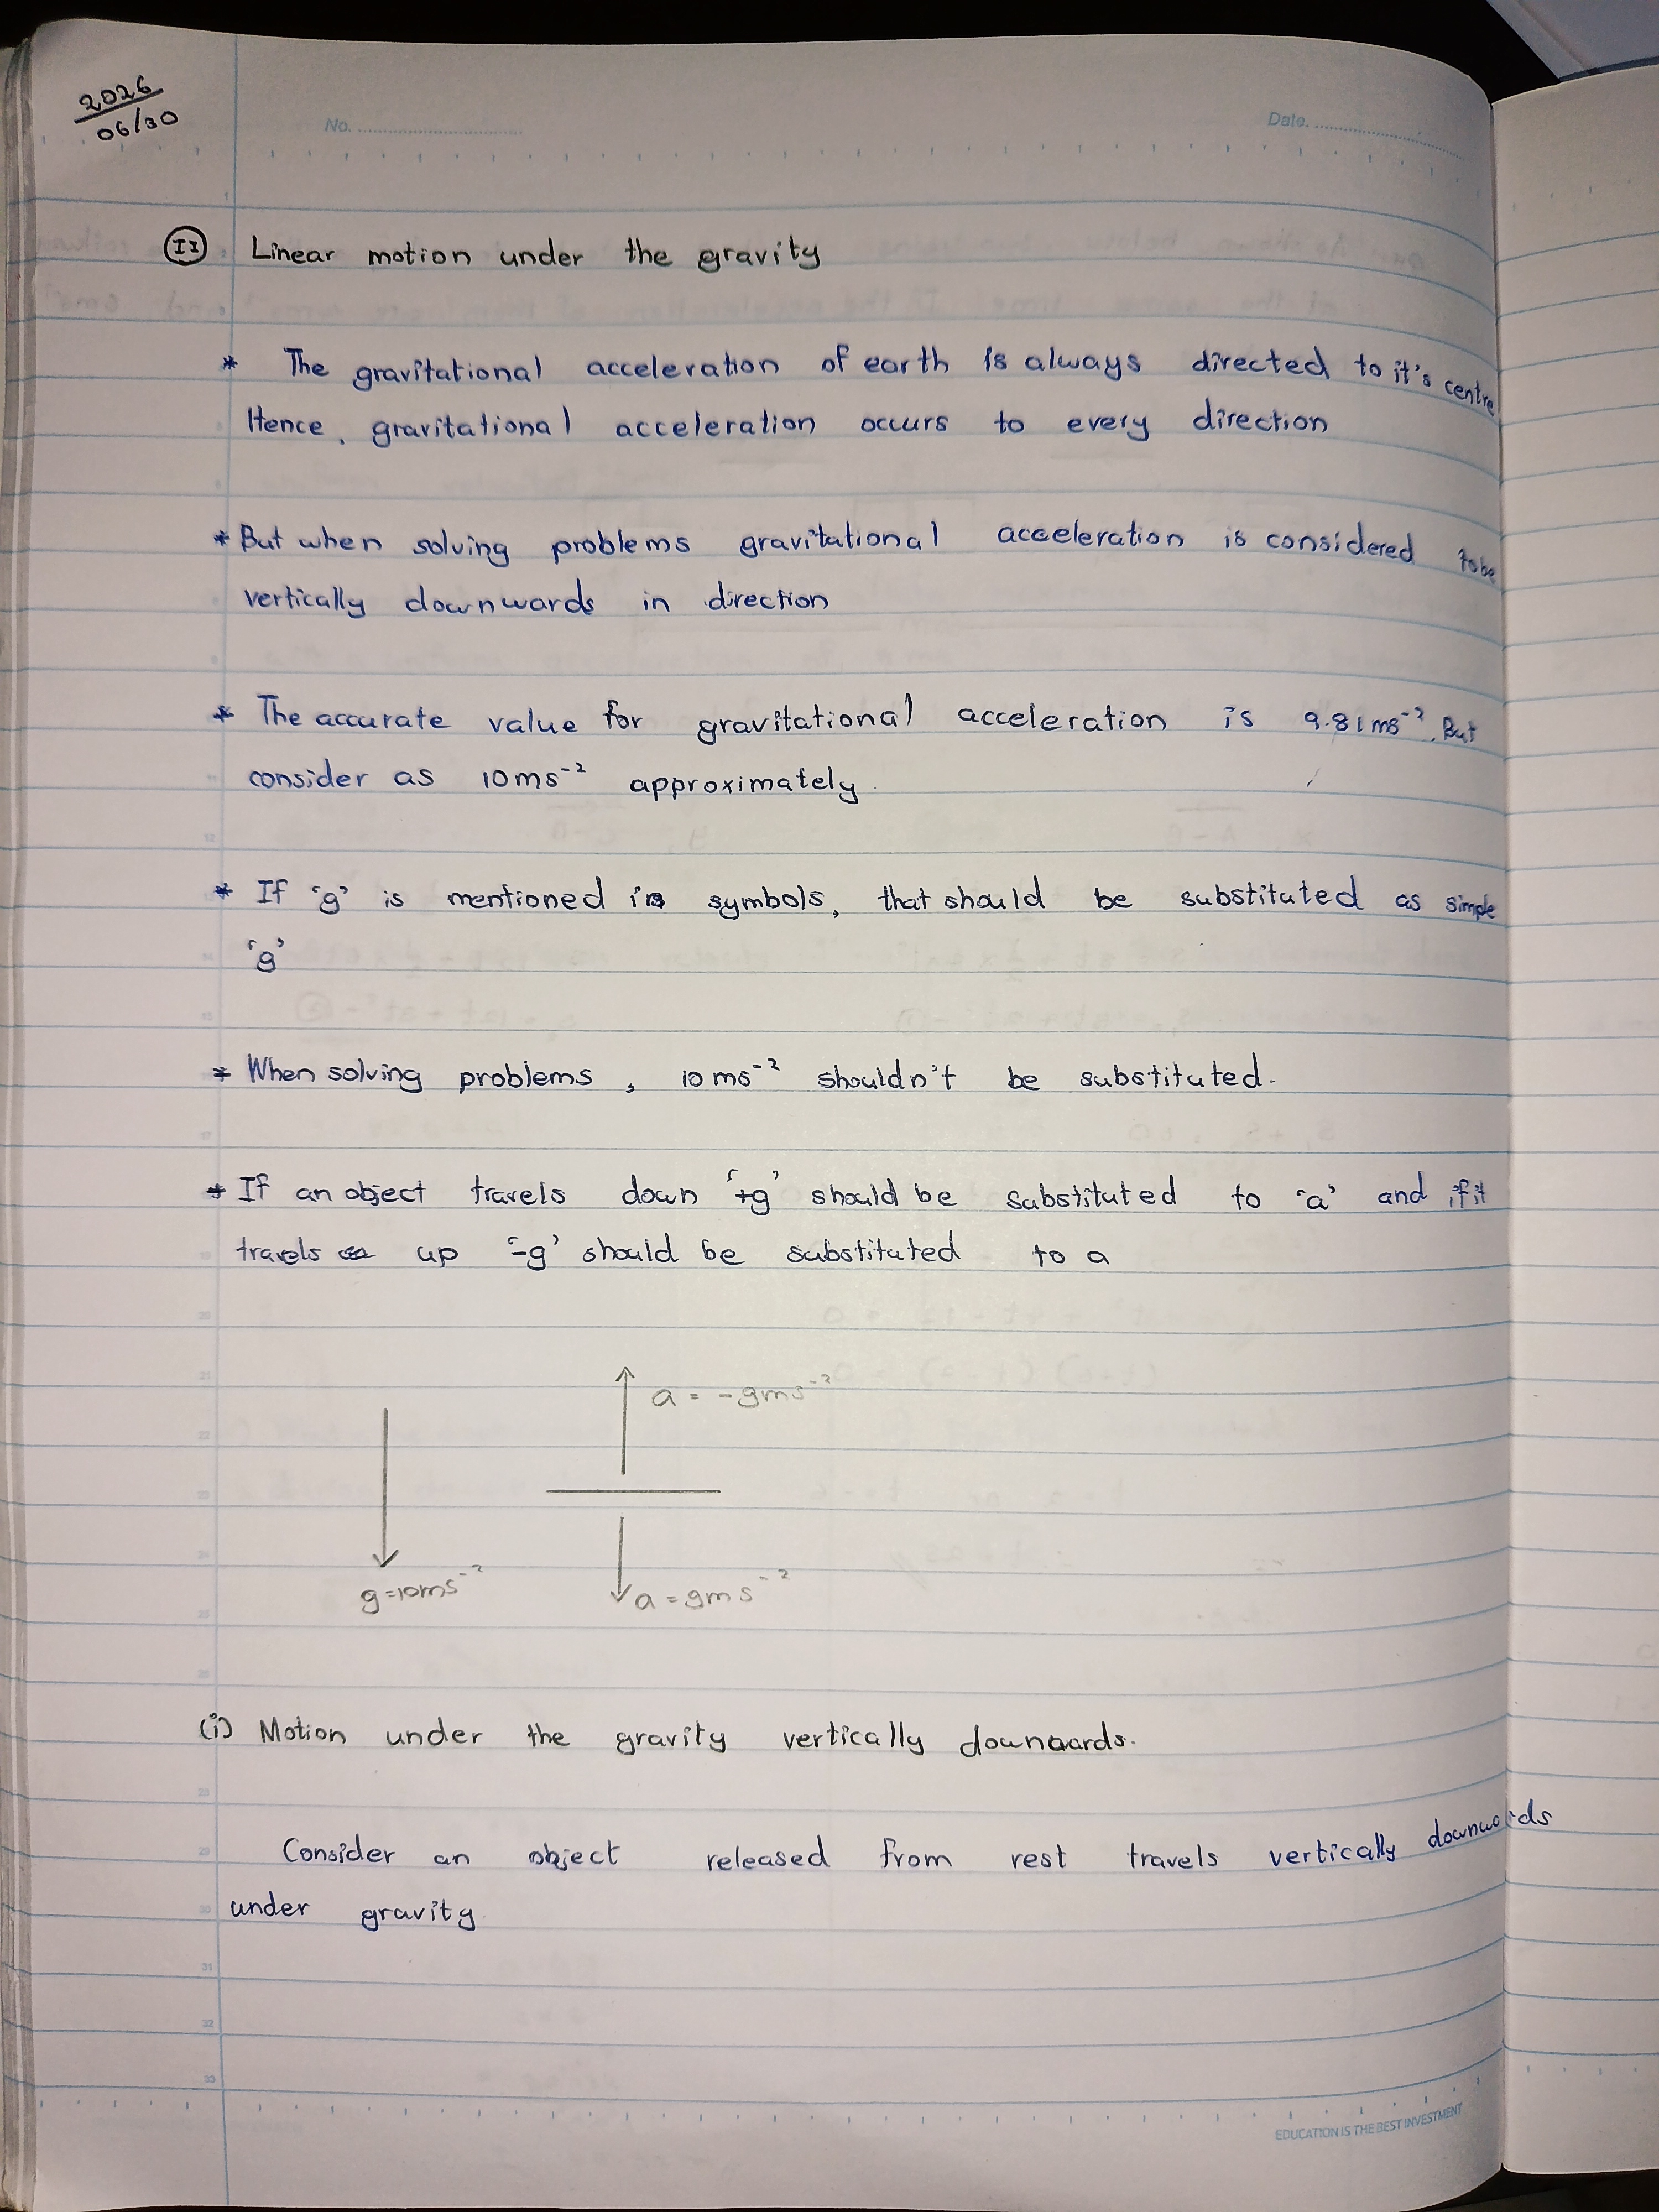 2026
06/30
No.
Date.
II Linear motion under the gravity
* The gravitational acceleration of earth is always directed to it's centre
Hence, gravitational acceleration occurs to every direction
* But when solving problems gravitational acceleration is considered to be
vertically downwards in direction
* The accurate value for gravitational acceleration is 9.81ms⁻². But
consider as 10ms⁻² approximately.
* If 'g' is mentioned in symbols, that should be substituted as simple
'g'
* When solving problems, 10ms⁻² shouldn't be substituted.
* If an object travels down '+g' should be substituted to 'a' and if it
travels up '-g' should be substituted to a
a = -gms⁻²
g=10ms⁻²
a = gms⁻²
(i) Motion under the gravity vertically downwards.
Consider an object released from rest travels vertically downwards
under gravity
EDUCATION IS THE BEST INVESTMENT